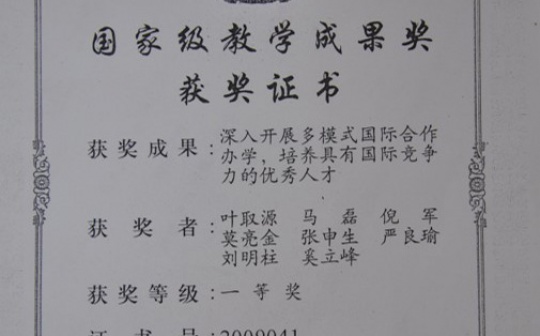 国家级教学成果奖
获奖证书
获奖成果：深入开展多模式国际合作
办学，培养具有国际竞争
力的优秀人才
获奖者：叶取源 马磊 倪军
莫亮金 张申生 严良瑜
刘明柱 奚立峰
获奖等级：一等奖
证书号：2009041